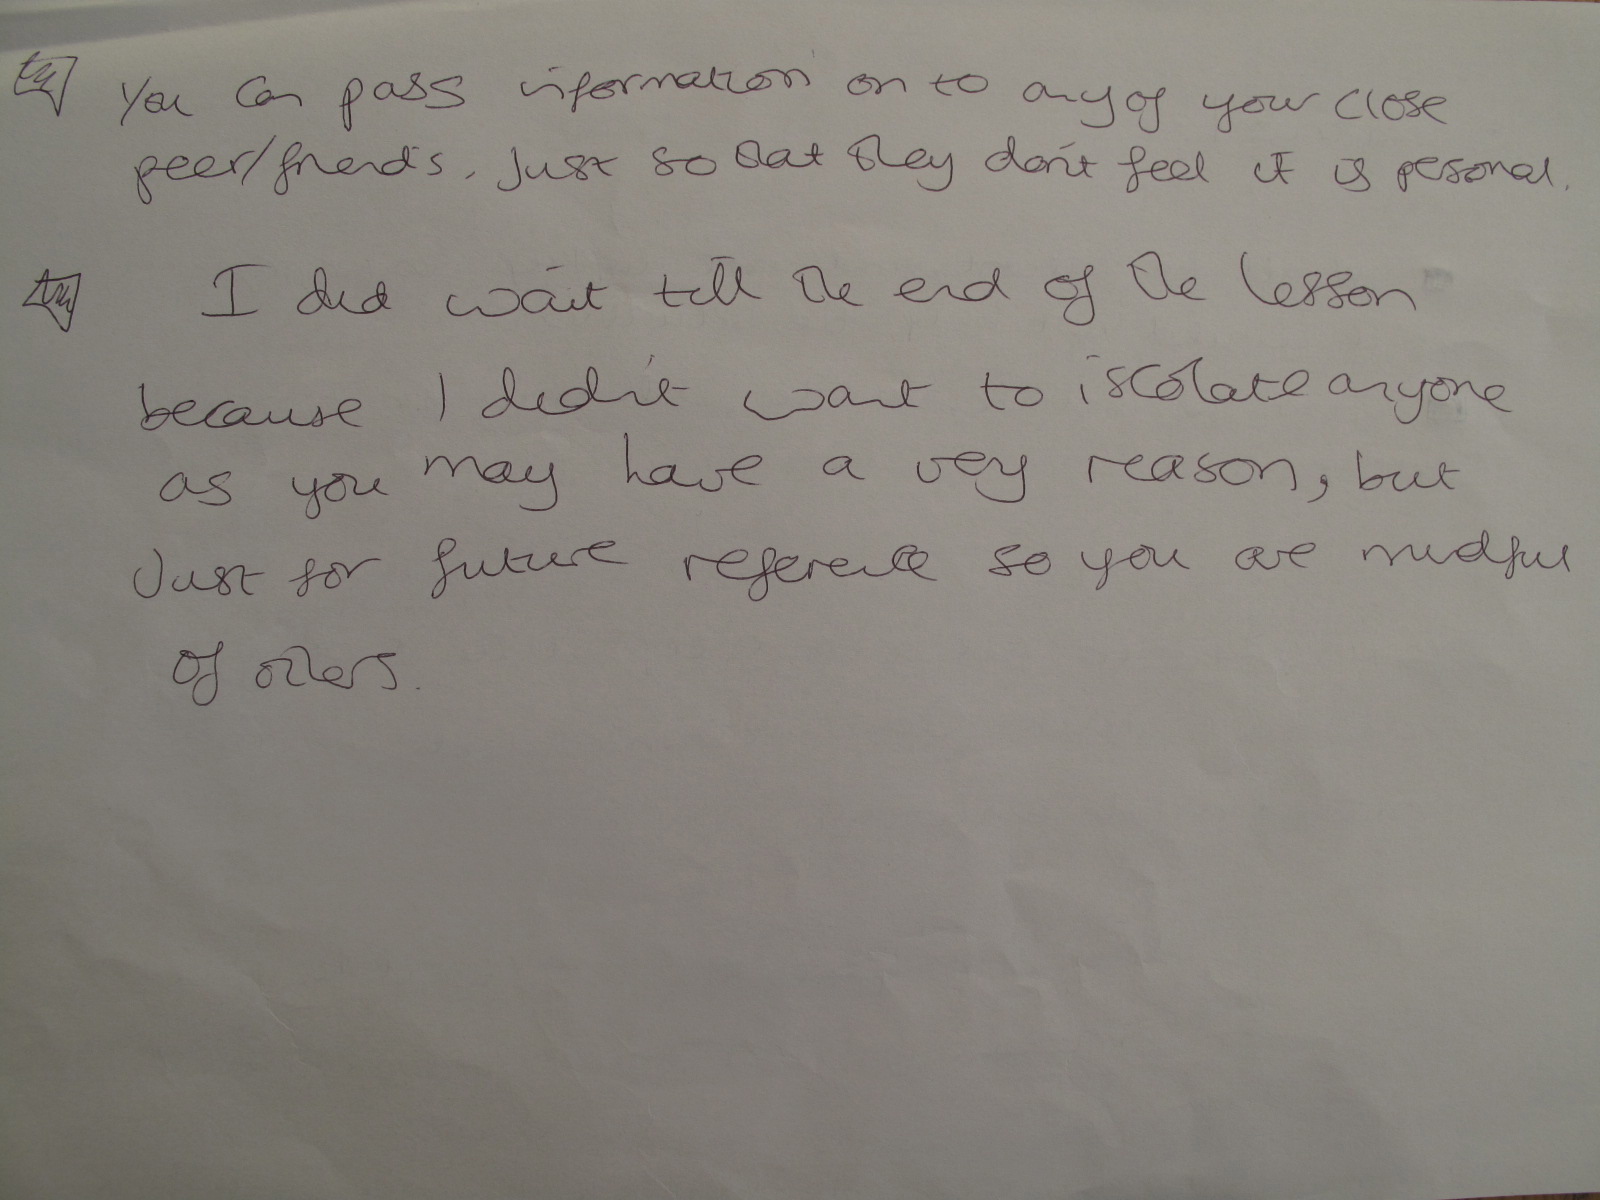 You can pass information on to any of your close
peer/friend's. Just so that they don't feel it is pesonal.
I did wait till the end of the lesson
because I didn't want to iscolate anyone
as you may have a very reason, but
Just for future reference so you are mindful
of others.